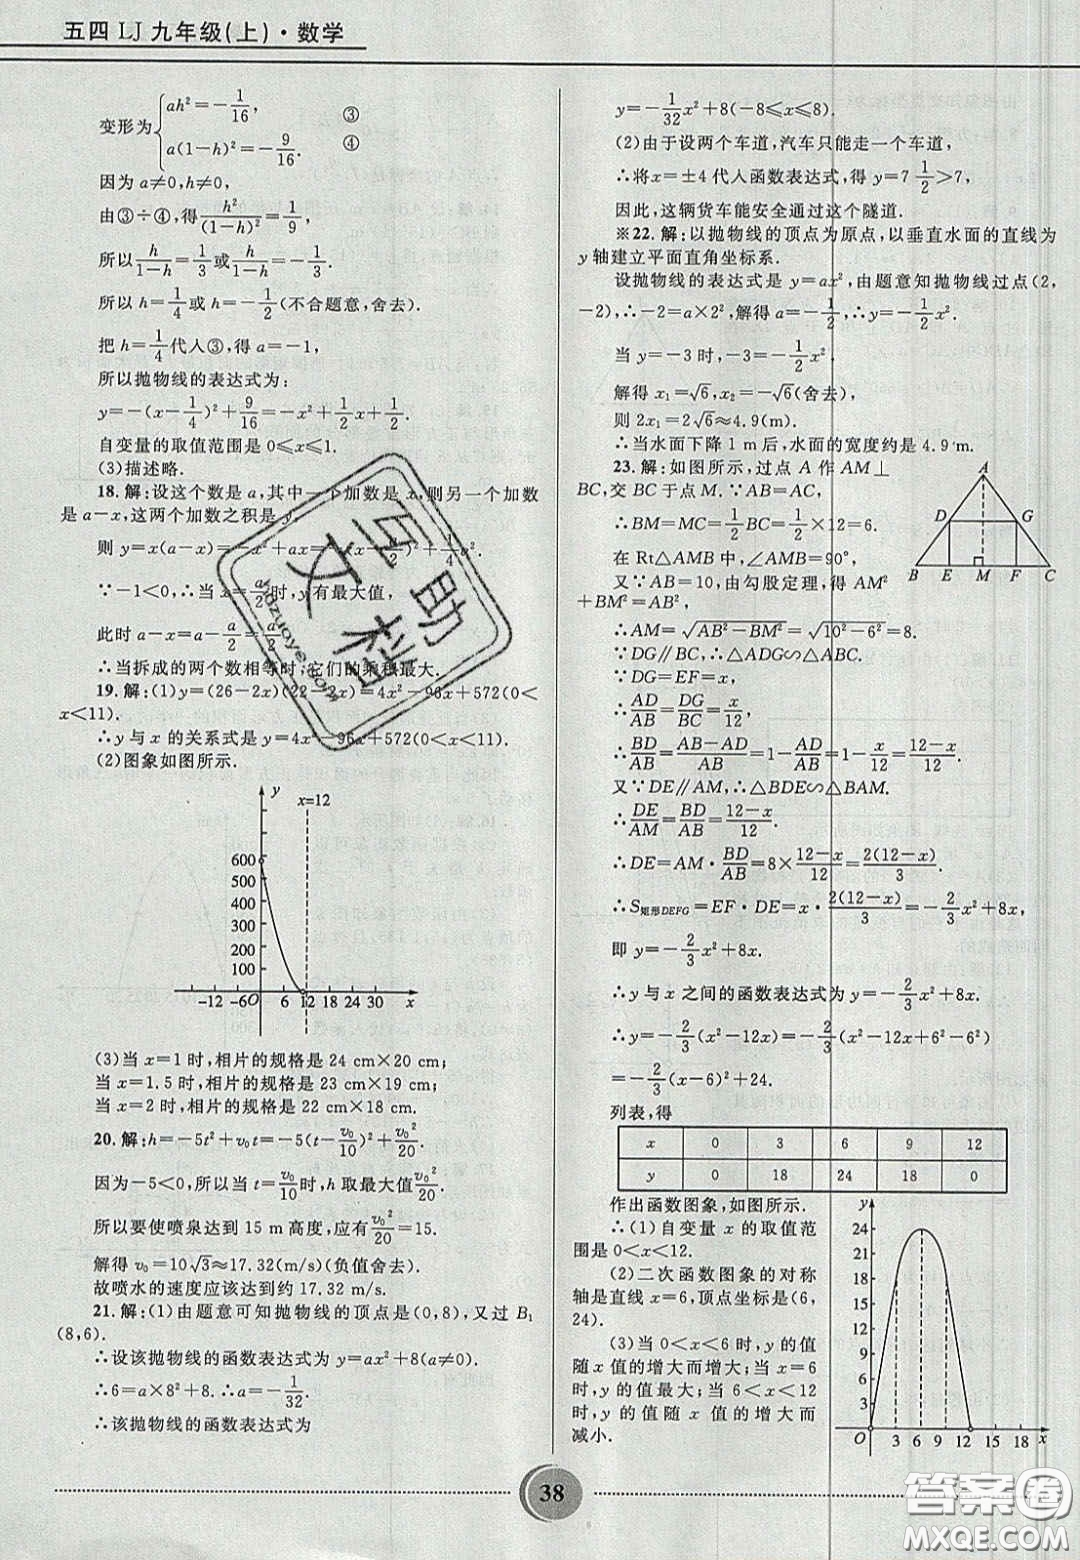 五四 LJ 九年级(上)·数学
变形为{ah²=-1/16, ③
a(1-h)²=-9/16. ④
因为 a≠0,h≠0,
由③÷④,得h²/(1-h)²=1/9,
所以h/(1-h)=1/3或h/(1-h)=-1/3.
所以 h=1/4或 h=-1/2(不合题意,舍去).
把 h=1/4代人③,得 a=-1,
所以抛物线的表达式为:
y=-(x-1/4)²+9/16=-x²+1/2x+1/2.
自变量的取值范围是 0≤x≤1.
(3)描述略.
18.解:设这个数是 a,其中一个加数是 x,则另一个加数
是 a-x,这两个加数之积是 y,
则 y=x(a-x)=-x²+ax=-(x-a/2)²+1/4a².
∵-1<0,∴当 x=a/2时,y有最大值,
此时 a-x=a-a/2=a/2.
∴当拆成的两个数相等时,它们的乘积最大.
19.解:(1)y=(26-2x)(22-2x)=4x²-96x+572(0<
x<11).
∴y 与 x 的关系式是 y=4x²-96x+572(0<x<11).
(2)图象如图所示.
y
x=12
600
500
400
300
200
100
-12 -6 O 6 12 18 24 30 x
(3)当 x=1 时,相片的规格是 24 cm×20 cm;
当 x=1.5 时,相片的规格是 23 cm×19 cm;
当 x=2 时,相片的规格是 22 cm×18 cm.
20.解:h=-5t²+v₀t=-5(t-v₀/10)²+v₀²/20.
因为-5<0,所以当 t=v₀/10时,h 取最大值v₀²/20.
所以要使喷泉达到 15 m 高度,应有v₀²/20=15.
解得 v₀=10√3≈17.32(m/s)(负值舍去).
故喷水的速度应该达到约 17.32 m/s.
21.解:(1)由题意可知抛物线的顶点是(0,8),又过 B₁
(8,6).
∴设该抛物线的函数表达式为 y=ax²+8(a≠0).
∴6=a×8²+8.∴a=-1/32.
∴该抛物线的函数表达式为
y=-1/32x²+8(-8≤x≤8).
(2)由于设两个车道,汽车只能走一个车道,
∴将 x=±4 代人函数表达式,得 y=7 1/2>7,
因此,这辆货车能安全通过这个隧道.
※22.解:以抛物线的顶点为原点,以垂直水面的直线为
y 轴建立平面直角坐标系.
设抛物线的表达式是 y=ax²,由题意知抛物线过点(2,
-2),∴-2=a×2²,解得 a=-1/2,∴y=-1/2x².
当 y=-3 时,-3=-1/2x².
解得 x₁=√6,x₂=-√6(舍去),
则 2x₁=2√6≈4.9(m).
∴当水面下降 1 m 后,水面的宽度约是 4.9 m.
23.解:如图所示,过点 A 作 AM⊥
BC,交 BC 于点 M.∵AB=AC,
∴BM=MC=1/2BC=1/2×12=6.
在 Rt△AMB 中,∠AMB=90°,
又∵AB=10,由勾股定理,得 AM²
+BM²=AB²,
A
D G
B E M F C
∴AM=√(AB²-BM²)=√(10²-6²)=8.
∵DG∥BC,∴△ADG∽△ABC.
∵DG=EF=x,
∴AD/AB=DG/BC=x/12,
∴BD/AB=(AB-AD)/AB=1-AD/AB=1-x/12=(12-x)/12.
又∵DE∥AM,∴△BDE∽△BAM.
∴DE/AM=BD/AB=(12-x)/12.
∴DE=AM·BD/AB=8×(12-x)/12=2(12-x)/3.
∴S矩形DEFG=EF·DE=x·2(12-x)/3=-2/3x²+8x,
即 y=-2/3x²+8x.
∴y 与 x 之间的函数表达式为 y=-2/3x²+8x.
∴y=-2/3(x²-12x)=-2/3(x²-12x+6²-6²)
=-2/3(x-6)²+24.
列表,得
x 0 3 6 9 12
y 0 18 24 18 0
作出函数图象,如图所示.
∴(1)自变量 x 的取值范
围是 0<x<12.
(2)二次函数图象的对称
轴是直线 x=6,顶点坐标是(6,
24).
(3)当 0<x<6 时,y 的值
随 x 值的增大而增大;当 x=6
时,y 的值最大;当 6<x<12
时,y 的值随 x 值的增大而
减小.
y
24
21
18
15
12
9
6
3
O 3 6 9 12 15 18 x
38
互助文科
yuzuoye.com
答案圈
MXQE.COM